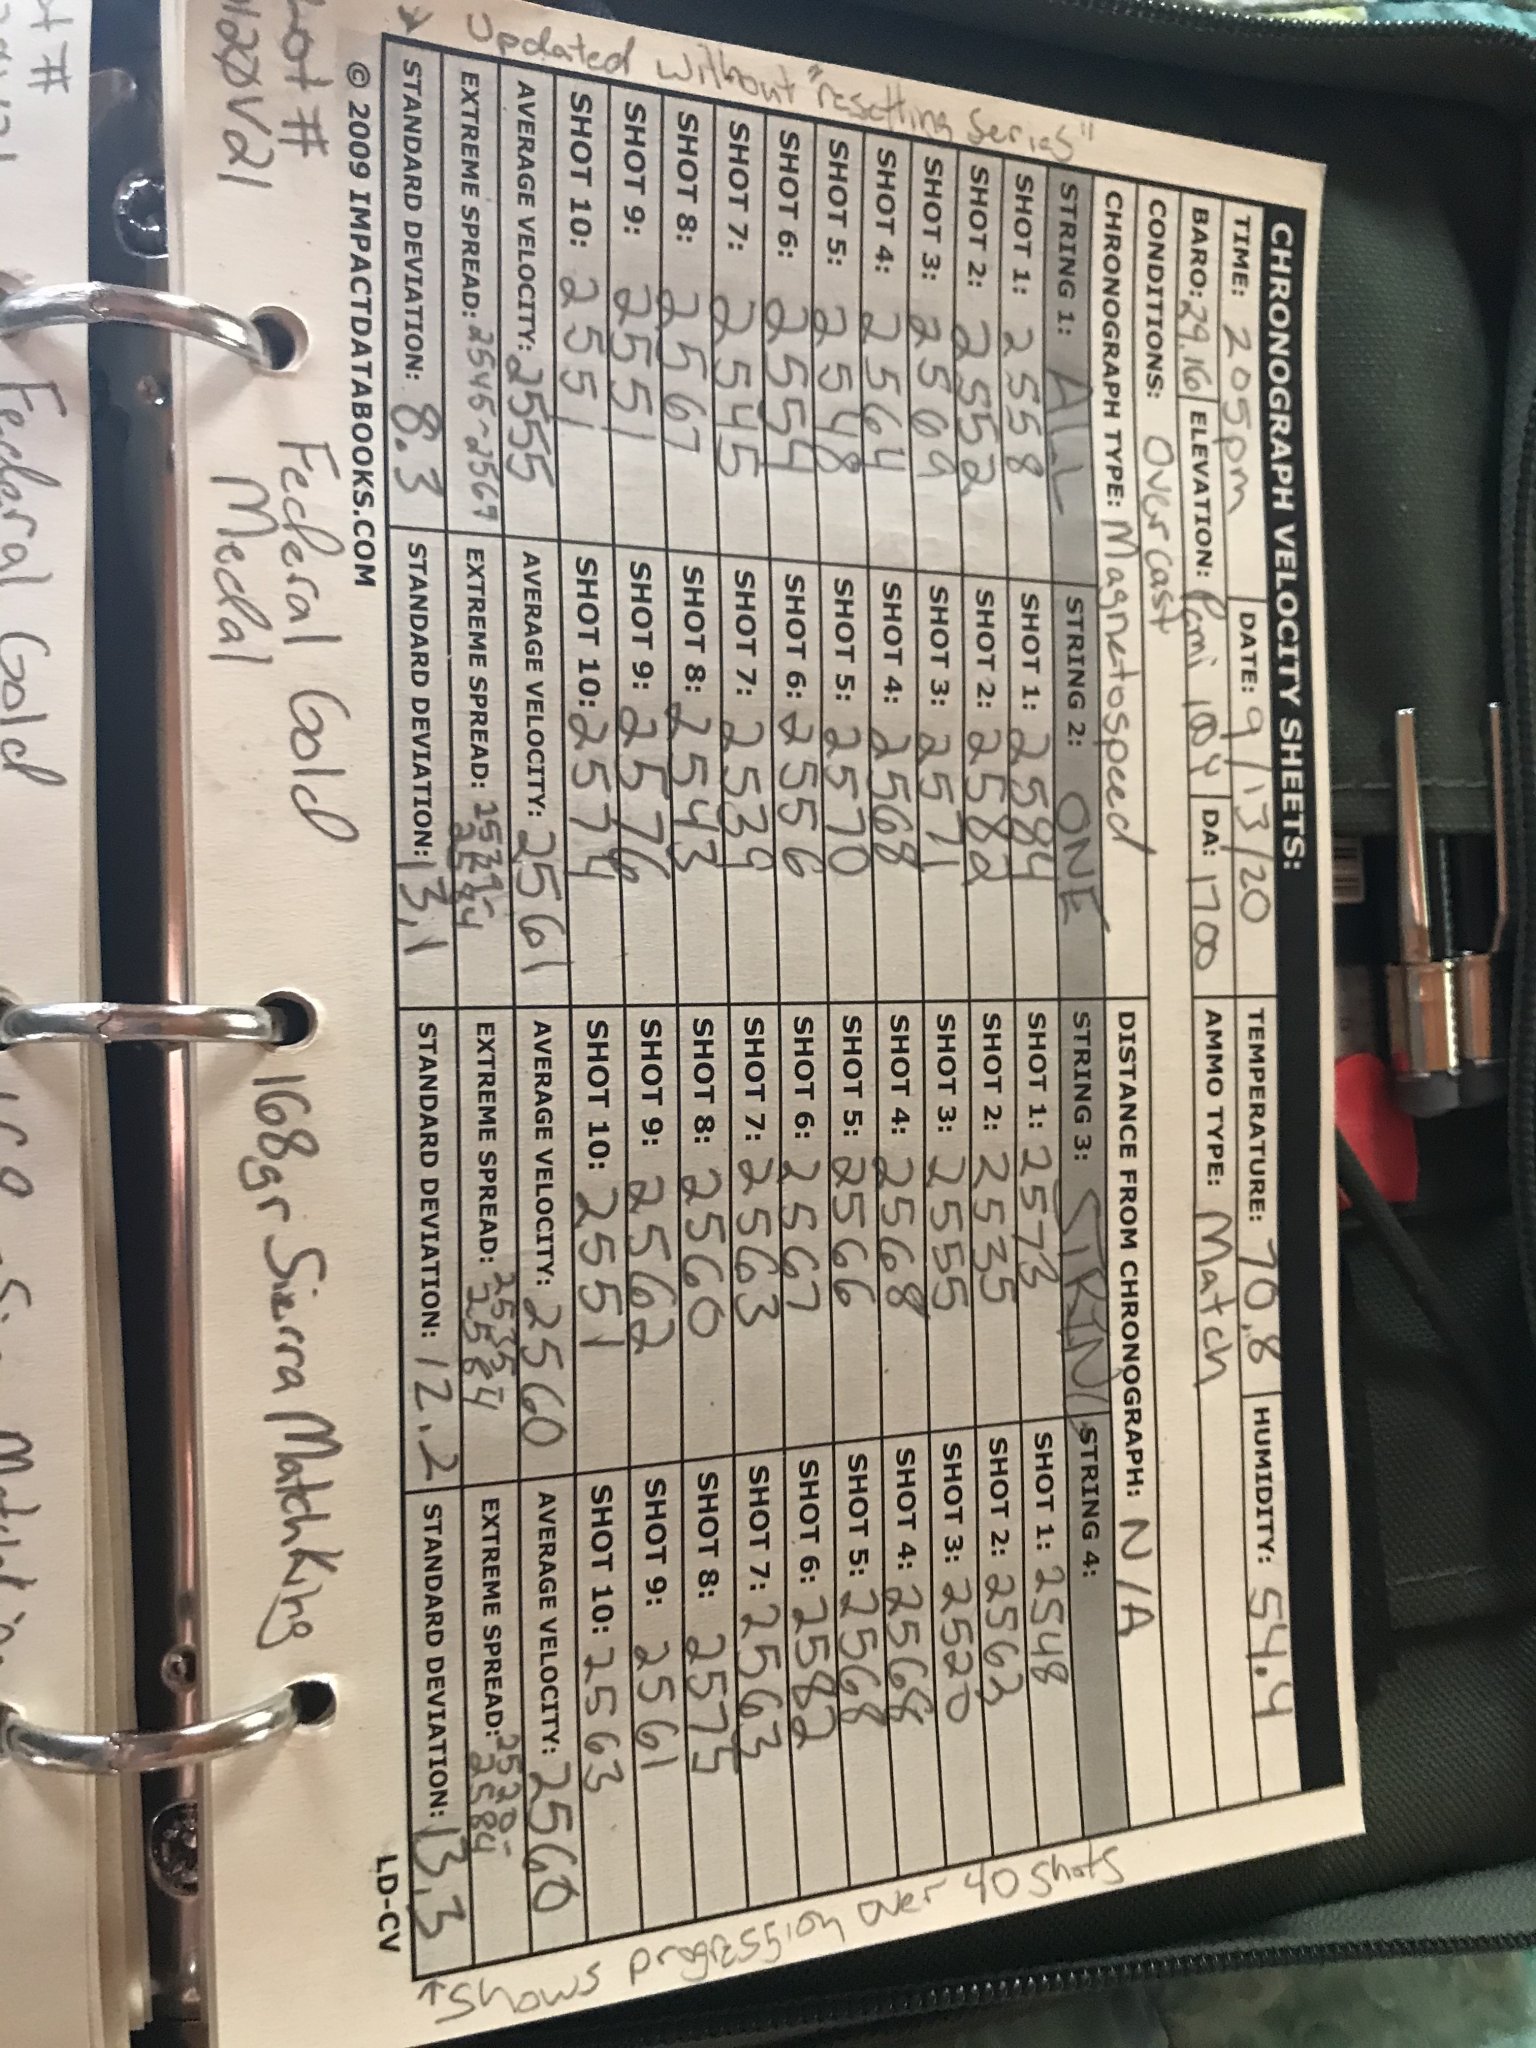 CHRONOGRAPH VELOCITY SHEETS:
TIME: 205pm DATE: 9/13/20 TEMPERATURE: 70.8 HUMIDITY: 54.4
BARO: 29.16 ELEVATION: DA: 1700 AMMO TYPE: Match
CONDITIONS: Overcast
CHRONOGRAPH TYPE: Magnetospeed DISTANCE FROM CHRONOGRAPH: N/A
STRING 1: ALL STRING 2: ONE STRING 3: STRING STRING 4:
SHOT 1: 2558 SHOT 1: 2584 SHOT 1: 2573 SHOT 1: 2548
SHOT 2: 2552 SHOT 2: 2582 SHOT 2: 2535 SHOT 2: 2563
SHOT 3: 2569 SHOT 3: 2571 SHOT 3: 2555 SHOT 3: 2520
SHOT 4: 2564 SHOT 4: 2568 SHOT 4: 2568 SHOT 4: 2568
SHOT 5: 2548 SHOT 5: 2570 SHOT 5: 2566 SHOT 5: 2568
SHOT 6: 2554 SHOT 6: 2556 SHOT 6: 2567 SHOT 6: 2582
SHOT 7: 2545 SHOT 7: 2539 SHOT 7: 2563 SHOT 7: 2563
SHOT 8: 2567 SHOT 8: 2543 SHOT 8: 2560 SHOT 8: 2575
SHOT 9: 2551 SHOT 9: 2576 SHOT 9: 2562 SHOT 9: 2561
SHOT 10: 2551 SHOT 10: 2574 SHOT 10: 2551 SHOT 10: 2563
AVERAGE VELOCITY: 2555 AVERAGE VELOCITY: 2561 AVERAGE VELOCITY: 2560 AVERAGE VELOCITY: 2560
EXTREME SPREAD: 2545-2569 EXTREME SPREAD: 2539-2584 EXTREME SPREAD: 2535-2584 EXTREME SPREAD: 2520-2584
STANDARD DEVIATION: 8.3 STANDARD DEVIATION: 13.1 STANDARD DEVIATION: 12.2 STANDARD DEVIATION: 13.3
© 2009 IMPACTDATABOOKS.COM LD-CV
Updated without "resetting series"
↑ Shows progression over 40 shots
Lot # Federal Gold 168gr Sierra MatchKing
Medal
Federal Gold